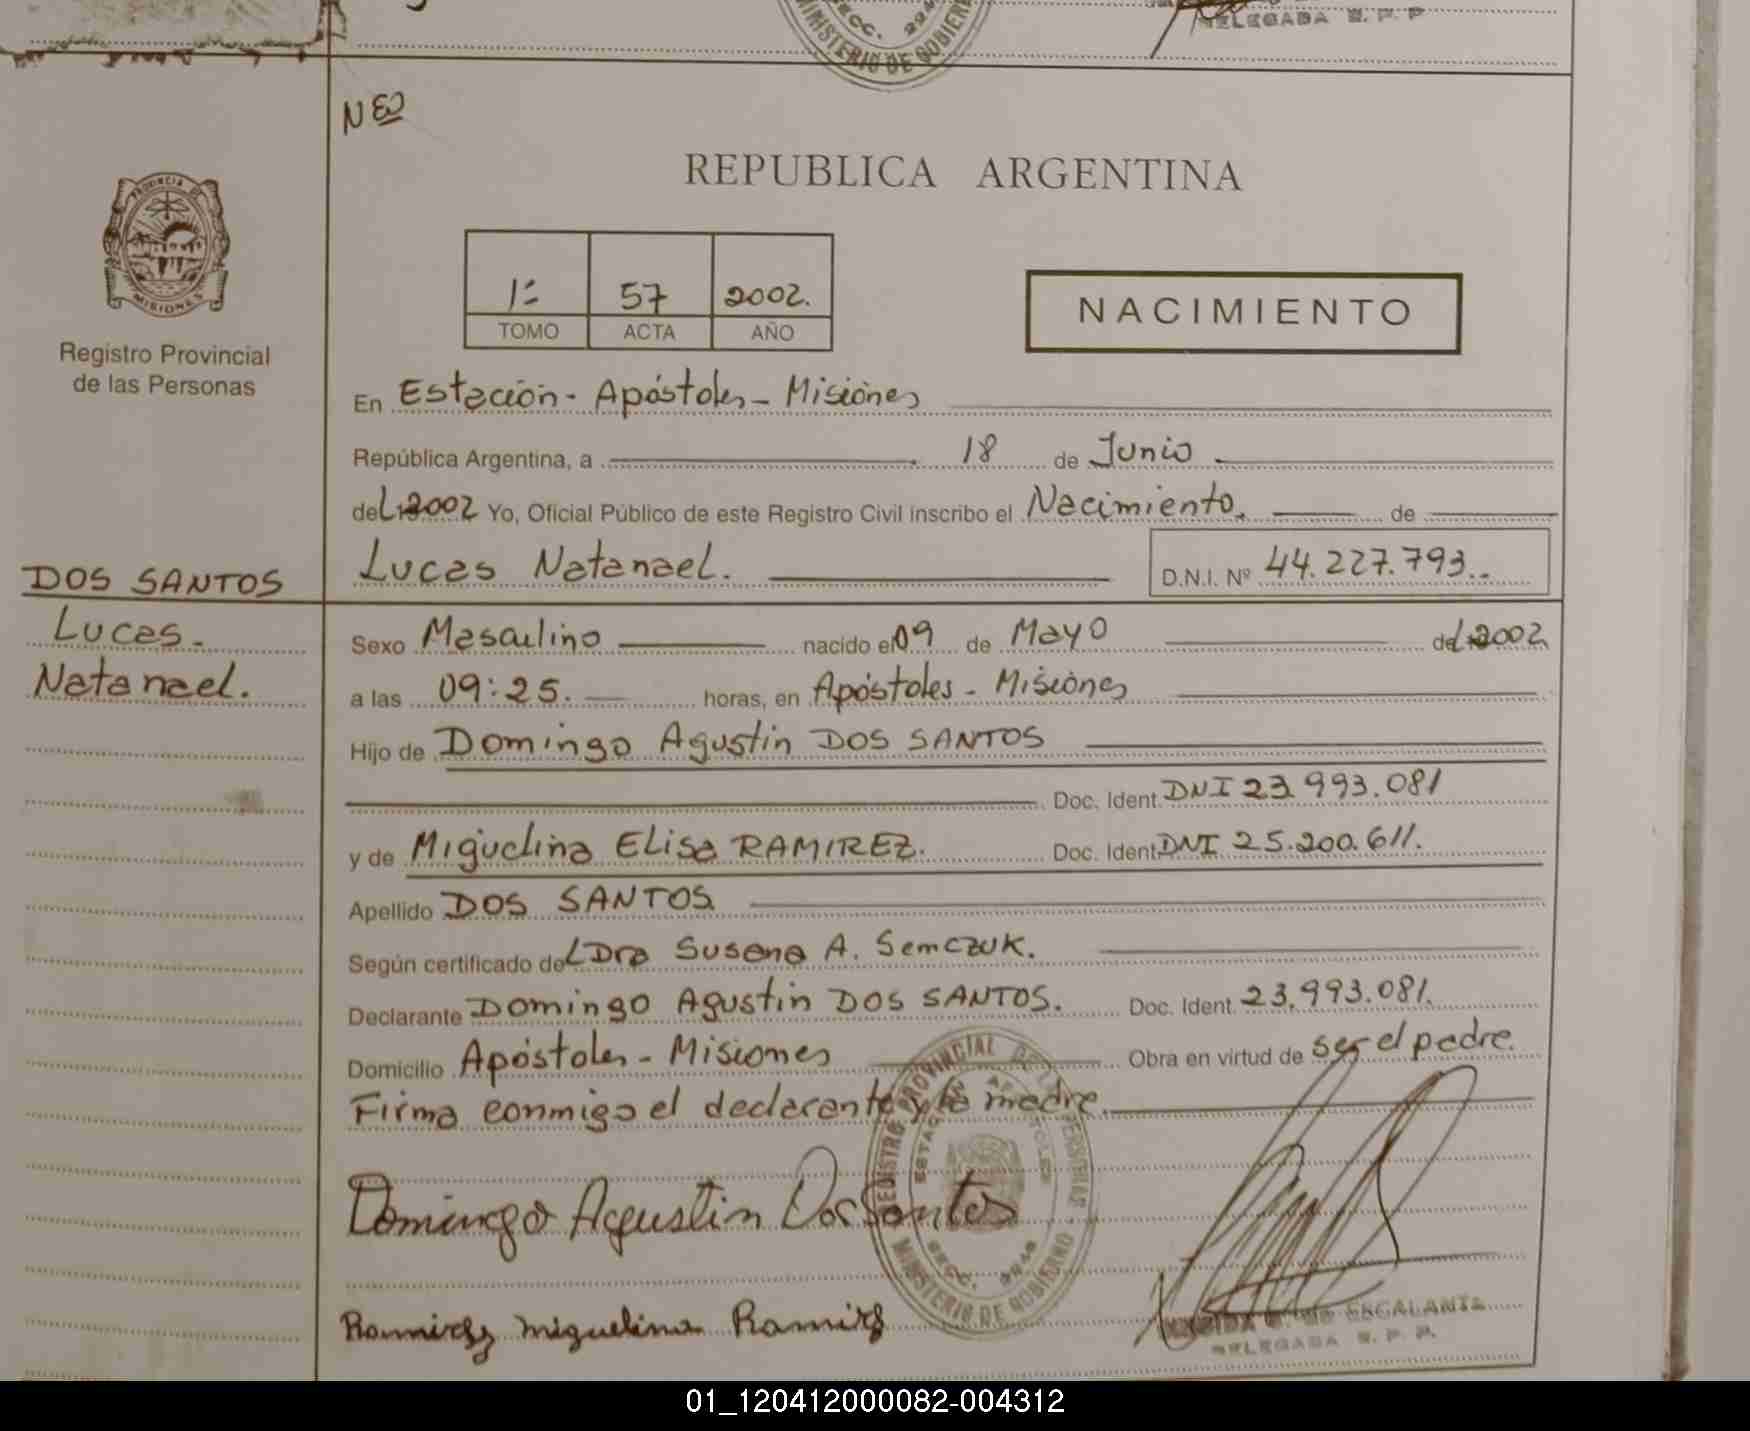 SECC. 2248
MINISTERIO DE GOBIERNO
DELEGADA R. P. P.
PROVINCIA DE
MISIONES
Registro Provincial
de las Personas
REPUBLICA ARGENTINA
1º 57 2002.
TOMO ACTA AÑO
NACIMIENTO
En Estación - Apóstoles - Misiones
República Argentina, a 18 de Junio
del 2002 Yo, Oficial Público de este Registro Civil inscribo el Nacimiento. de
Lucas Natanael. D.N.I. Nº 44.227.793..
DOS SANTOS
Lucas.
Natanael.
Sexo Masculino nacido el 09 de Mayo del 2002
a las 09:25. horas, en Apóstoles - Misiones
Hijo de Domingo Agustin DOS SANTOS
Doc. Ident. DNI 23.993.081
y de Miguelina Elisa RAMIREZ. Doc. Ident. DNI 25.200.611.
Apellido DOS SANTOS
Según certificado del Dra Susana A. Semczuk.
Declarante Domingo Agustin DOS SANTOS. Doc. Ident. 23.993.081.
Domicilio Apóstoles - Misiones Obra en virtud de ser el padre.
Firma conmigo el declarante y la madre.
REGISTRO PROVINCIAL DE LAS PERSONAS
ESTACION APOSTOLES
SECC. 2248
MINISTERIO DE GOBIERNO
Domingo Agustin Dos Santos
Ramirez Miguelina Ramirez
DE ESCALANTE
DELEGADA R. P. P.
01_120412000082-004312